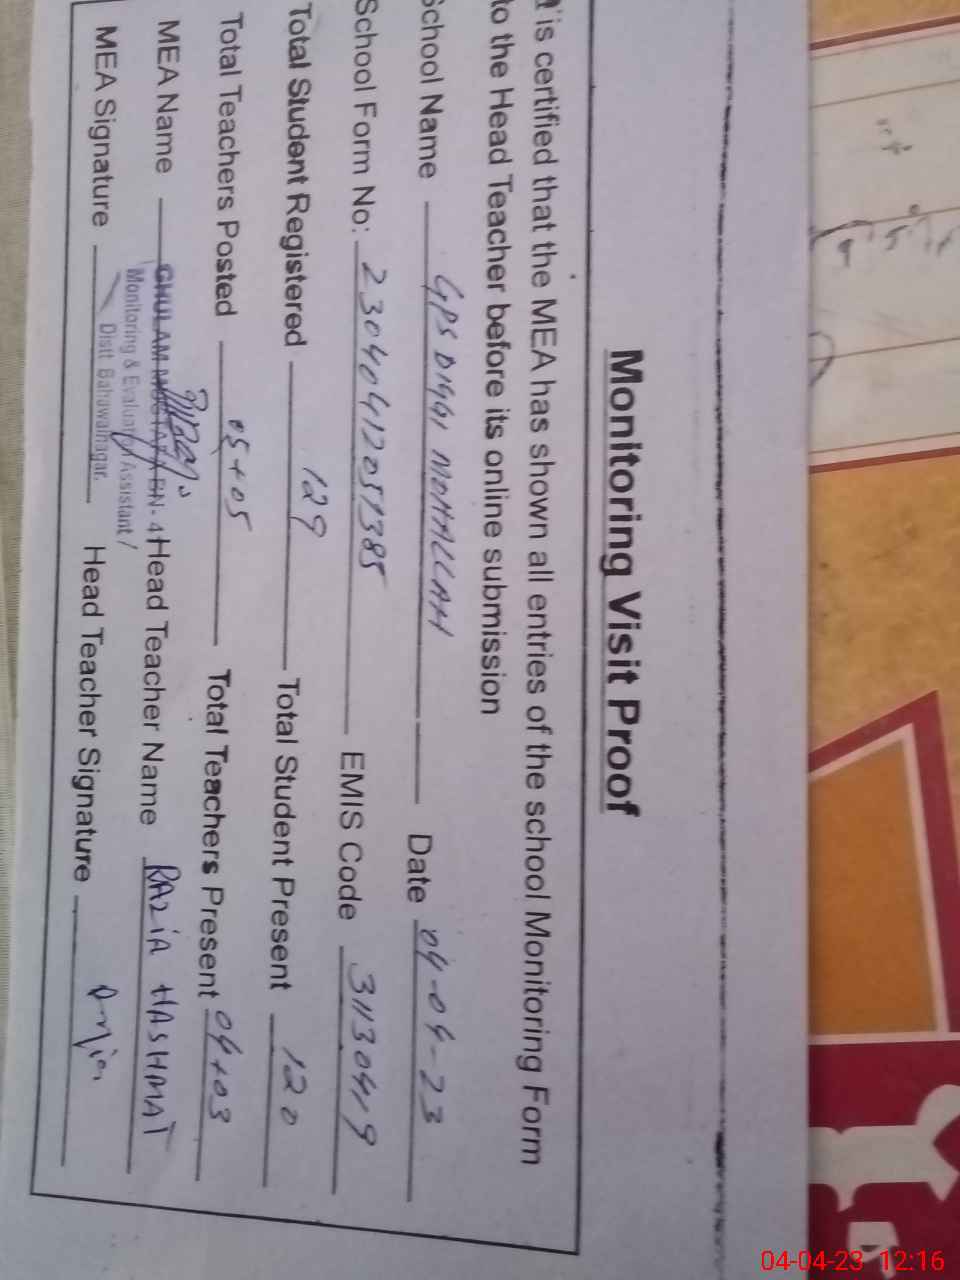 Monitoring Visit Proof
is certified that the MEA has shown all entries of the school Monitoring Form
to the Head Teacher before its online submission
School Name GPS DIGGI MOHALLAH Date 04-04-23
School Form No: 23040412051385 EMIS Code 31130419
Total Student Registered 129 Total Student Present 120
Total Teachers Posted 05+05 Total Teachers Present 04+03
MEA Name GHULAM MUSTAFA BN-41 Head Teacher Name RAZIA HASHMAT
Monitoring & Evaluation Assistant /
Distt Bahawalnagar.
MEA Signature Head Teacher Signature
04-04-23 12:16